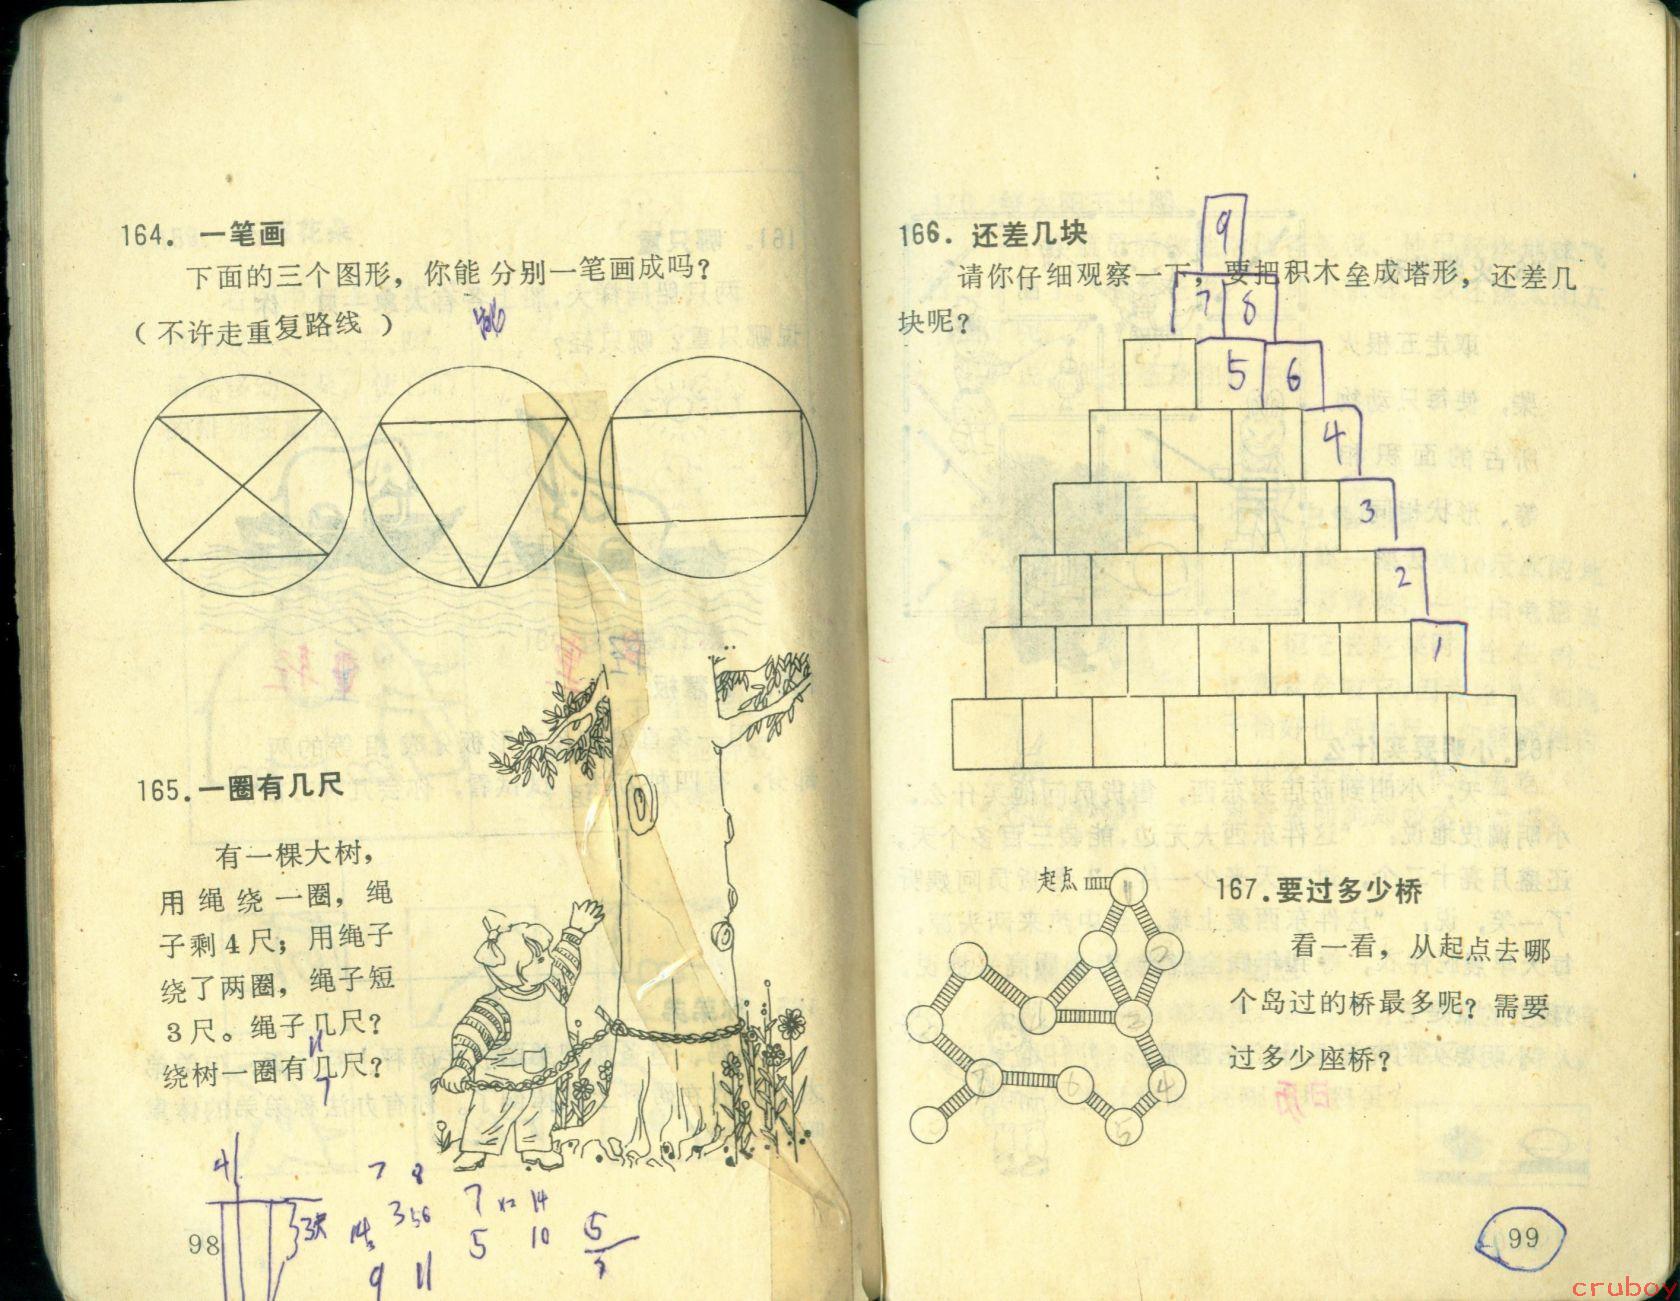 164. 一笔画
下面的三个图形，你能分别一笔画成吗？
（不许走重复路线）
165. 一圈有几尺
有一棵大树，
用绳绕一圈，绳
子剩4尺；用绳子
绕了两圈，绳子短
3尺。绳子几尺？
11
绕树一圈有几尺？
7
4
3尺
7 8
3 56
9 11
7 x2 14
5 10
5
98
166. 还差几块
请你仔细观察一下，要把积木垒成塔形，还差几
块呢？
9
7 8
5 6
4
3
2
1
起点
1
2
3
4
5
6
7
167. 要过多少桥
看一看，从起点去哪
个岛过的桥最多呢？需要
过多少座桥？
99
cruboy